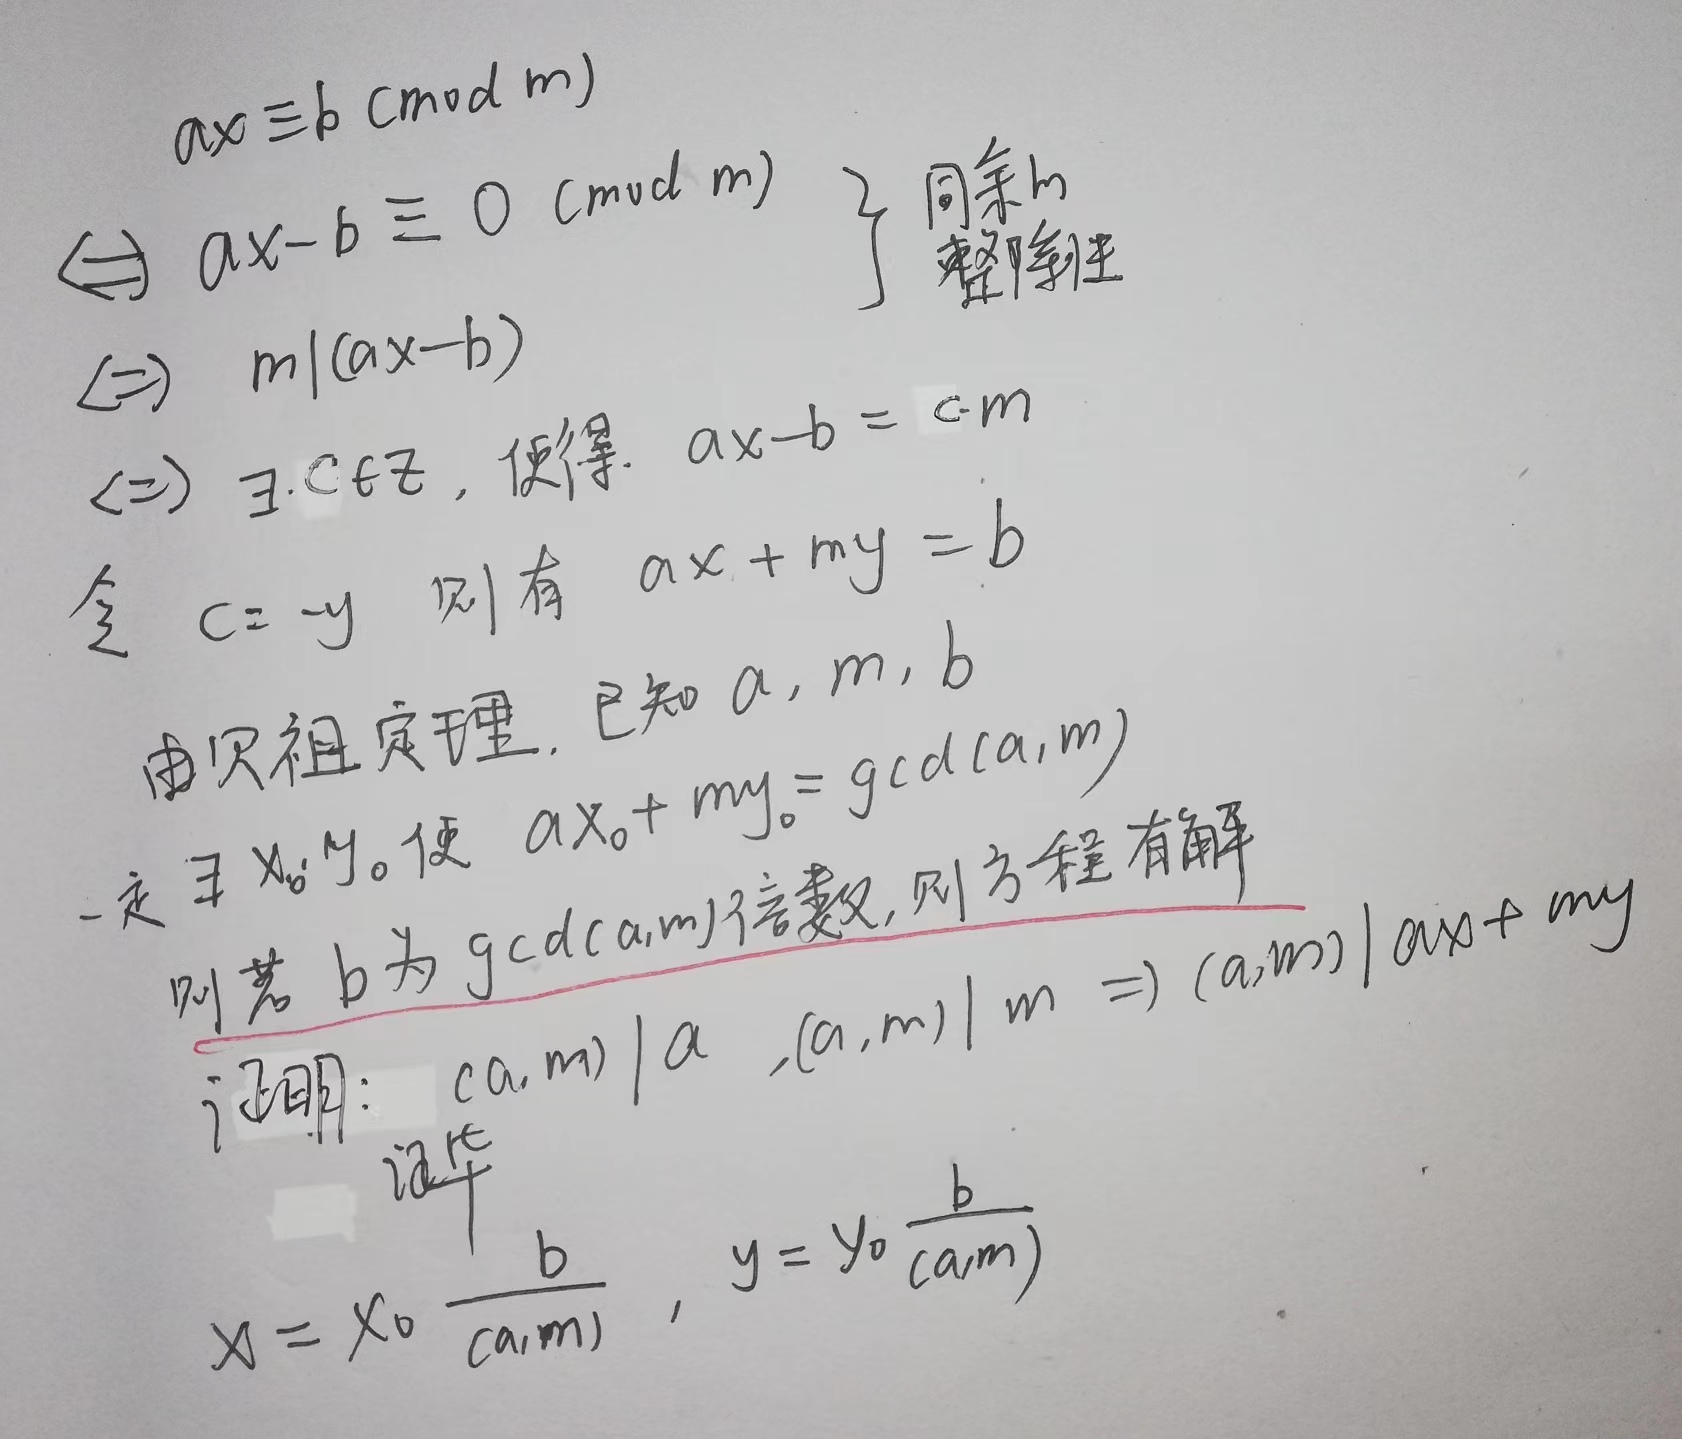 ax≡b (mod m)
⇔ ax-b≡0 (mod m) } 同余m
整除性
⇔ m|(ax-b)
⇔ ∃·C∈Z, 使得. ax-b=c·m
令 c=-y 则有 ax+my=b
由贝祖定理, 已知 a, m, b
一定∃ x₀, y₀ 使 ax₀+my₀=gcd(a,m)
则若 b为gcd(a,m)倍数,则方程有解
证明: (a,m)|a ,(a,m)|m ⇒ (a,m)|ax+my
证毕
x=x₀ b/(a,m) , y=y₀ b/(a,m)